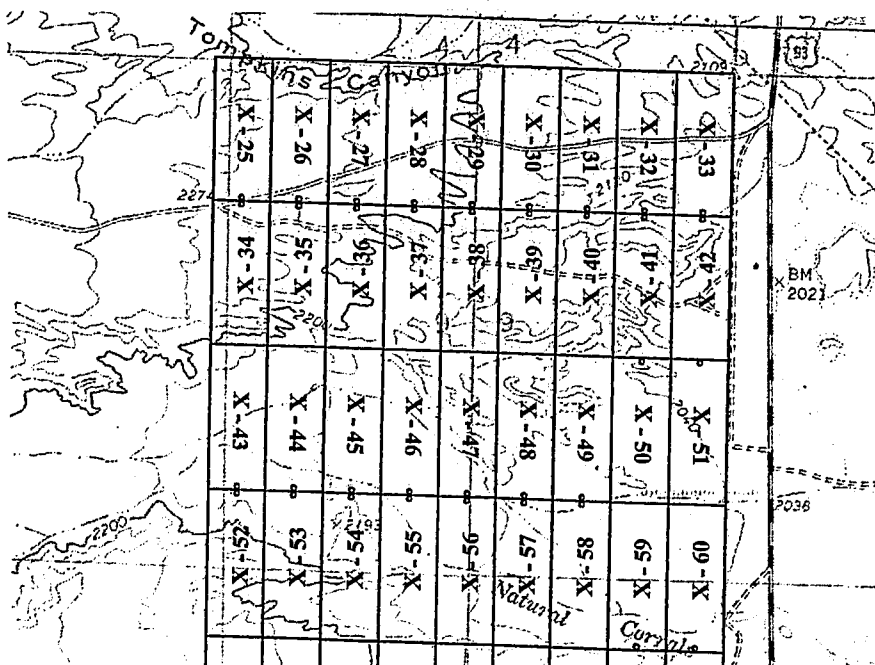 Tompkins Canyon
4
93
2109
X-25 X-26 X-27 X-28 X-29 X-30 X-31 X-32 X-33
2274
X-34 X-35 X-36 X-37 X-38 X-39 X-40 X-41 X-42
BM
2021
2200
3
X-43 X-44 X-45 X-46 X-47 X-48 X-49 X-50 X-51
2040
2036
2200
2193
X-52 X-53 X-54 X-55 X-56 X-57 X-58 X-59 X-60
Natural Corrals